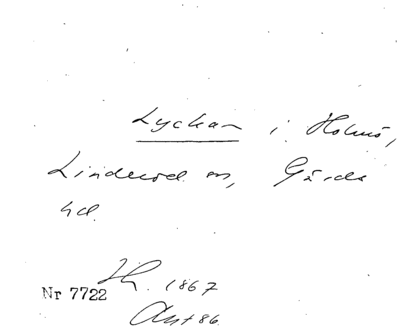 Lyckan i Holmö,
Linderöd sn, Gärds
hd.
Nr 7722 1867
Ant 86.